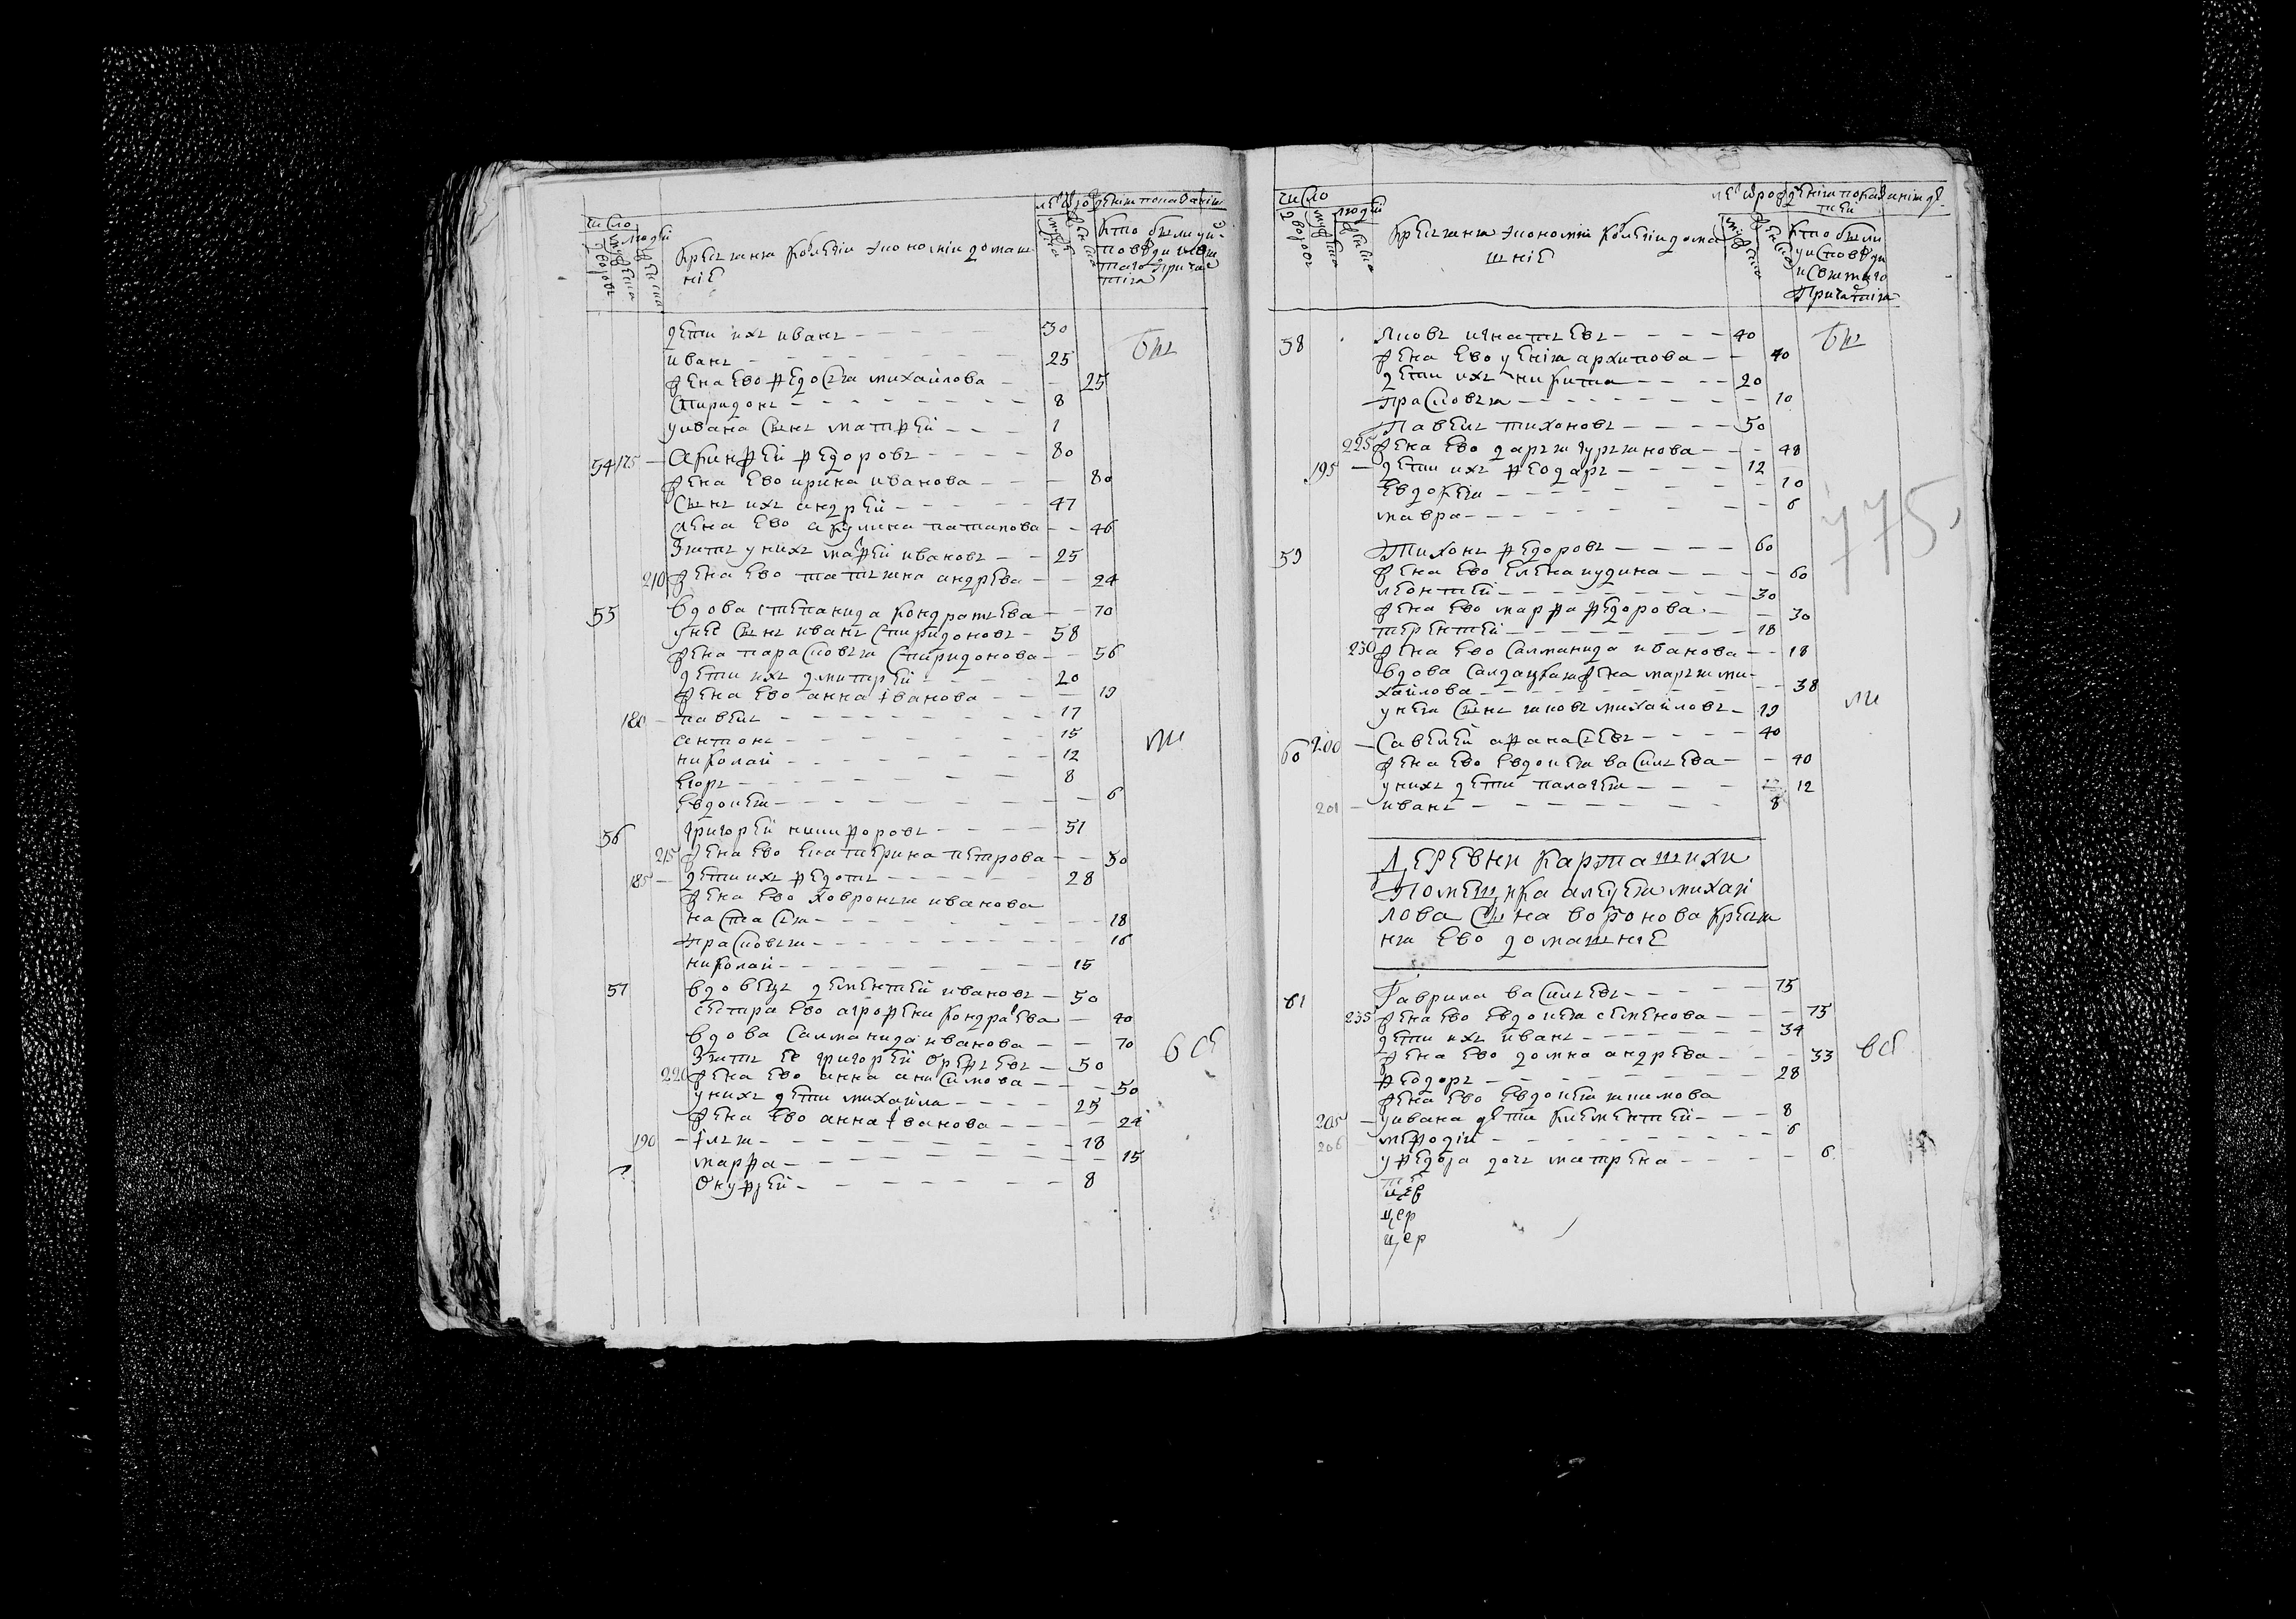 число
дворовъ
людей
мужеска
женска
крестьяня колегіи экономіи домаш
ніе
мужеска
женска
кто были у ис
поведи и свя
таго прича
тія
дети ихъ иванъ 30
иванъ 25
жена ево федосья михайлова 25
спиридонъ 8
у ивана сынъ матфей 1
54 175 акинфей федоровъ 80
жена ево ирина иванова 80
сынъ ихъ андрей 47
жена ево акулина патапова 46
зять у нихъ марфей ивановъ 25
210 жена ево татьяна андрева 24
55 вдова степанида кондратьева 70
у нее сынъ иванъ спиридоновъ 58
жена парасковья спиридонова 56
дети ихъ дмитрей 20
жена ево анна іванова 19
180 павелъ 17
антонъ 15
николай 12
егоръ 8
евдокея 6
56 григорей никифоровъ 51
215 жена ево екатерина петрова 50
185 дети ихъ федотъ 28
жена ево ховронья иванова
настасья 18
прасковья 16
николай 15
57 вдовецъ дементей ивановъ 50
сестра ево агрофени кондратева 40
вдова саламанида иванова 70
зять ее григорей ерефьевъ 50
220 жена ево анна анисимова 50
у нихъ дети михайла 25
жена ево анна іванова 24
190 ілья 18
марфа 15
онуфрей 8
бы
ли
все
число
дворовъ
людей
мужеска
женска
крестьяня экономіи колегіи дома
шніе
мужеска
женска
кто были
у исповеди
и святаго
причастія
58 яковъ игнатьевъ 40
жена ево уенія архипова 40
дети ихъ никита 20
прасковья 10
павелъ тихоновъ 50
225 жена ево дарья гурьянова 48
195 дети ихъ феодаръ 12
евдокея 10
мавра 6
59 тихонъ федоровъ 60
жена ево елена иудина 60
леонтей 30
жена ево марфа федорова 30
терентей 18
230 жена ево саламанида иванова 18
вдова салдацкая жена марья ми
хайлова 38
у нея сынъ яковъ михайловъ 19
60 200 савелей афанасьевъ 40
жена ево евдокея васильева 40
у нихъ дети палагея 12
201 иванъ 8
775
деревни карташихи
помещика алексея михай
лова сына воронова крестья
ня ево домашніе
61 гаврила васильевъ 75
235 жена ево евдокея семенова 75
дети ихъ иванъ 34
жена ево домна андрева 33
феодоръ 28
жена ево евдокея якимова
205 у ивана дети клементей 8
206 мефодій 6
у федора дочь матрена 6
бы
ли
все
цер
цер
цер